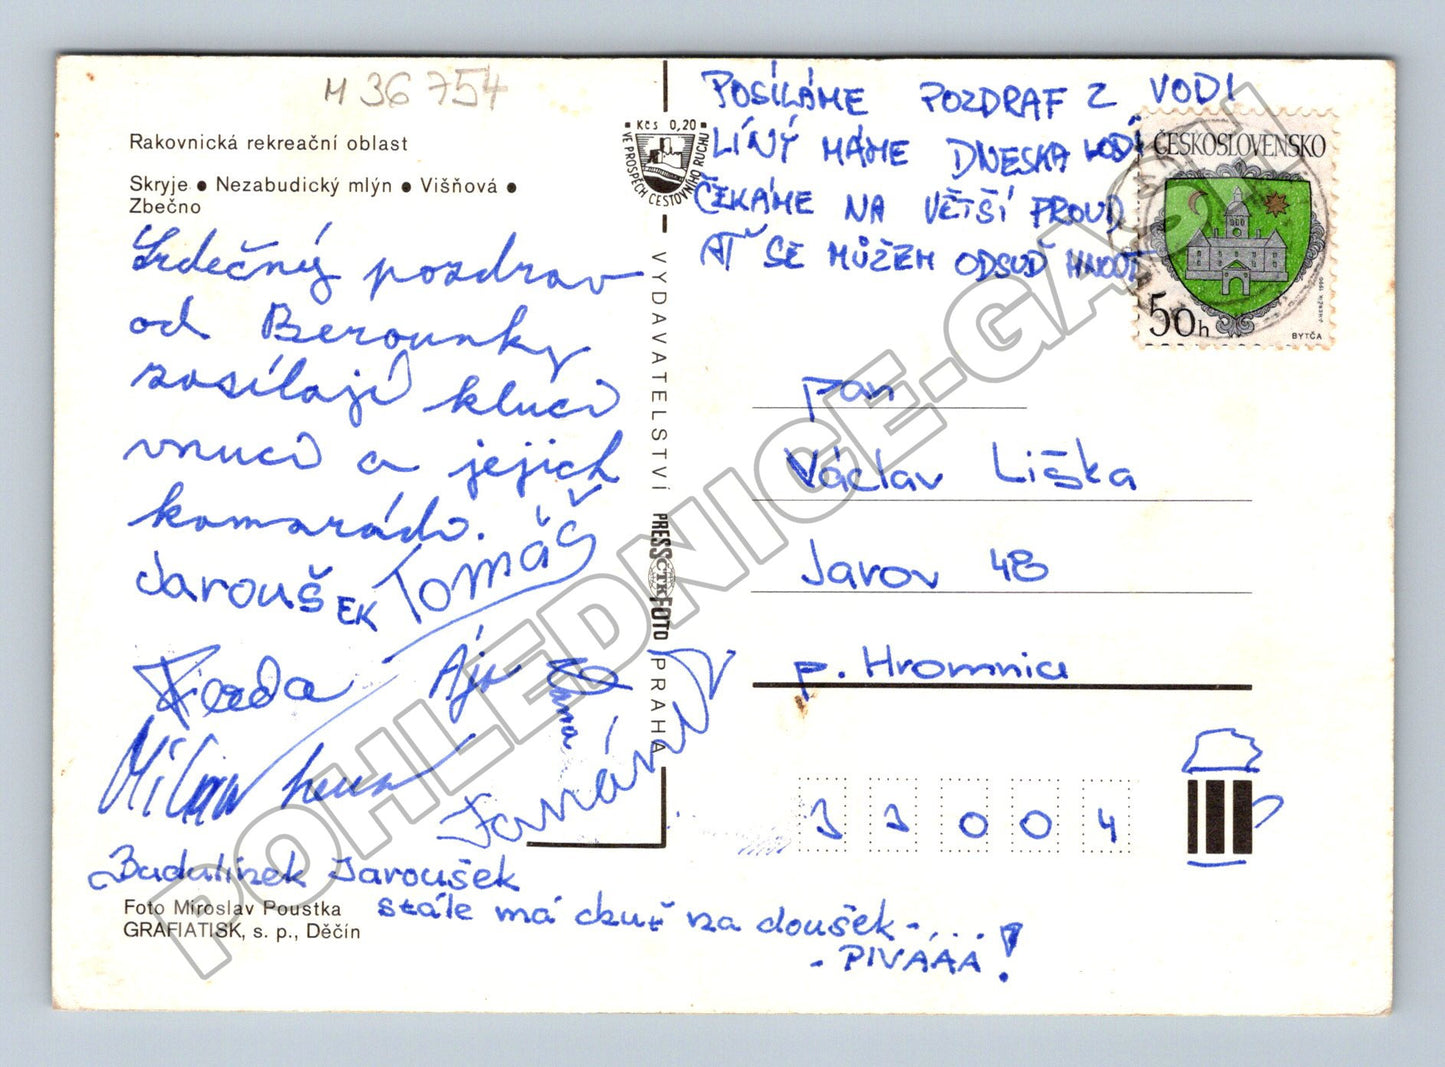 M 36 754
Rakovnická rekreační oblast
Skryje ● Nezabudický mlýn ● Višňová ●
Zbečno
Srdečný pozdrav
od Berounky
zasílají kluci
vnuci a jejich
kamarádi.
Jaroušek Tomáš
Ferda Ája
Milan
Badalínek Jaroušek
stále má chuť na doušek - ....
- PIVÁÁÁ!
Foto Miroslav Poustka
GRAFIATISK, s. p., Děčín
Kčs 0,20
VE PROSPĚCH CESTOVNÍHO RUCHU
VYDAVATELSTVÍ PRESSFOTO PRAHA
ČTK
POSÍLÁME POZDRAF Z VODI
LÍNÝ MÁME DNESKA HODI
ČEKÁME NA VĚTŠÍ PROUD
AŤ SE MŮŽEM ODSUĎ HNOUT
ČESKOSLOVENSKO
50h
BYTČA
1990
pan
Václav Liška
Jarov 48
p. Hromnice
3 3 0 0 4
POHLEDNICE-GASH